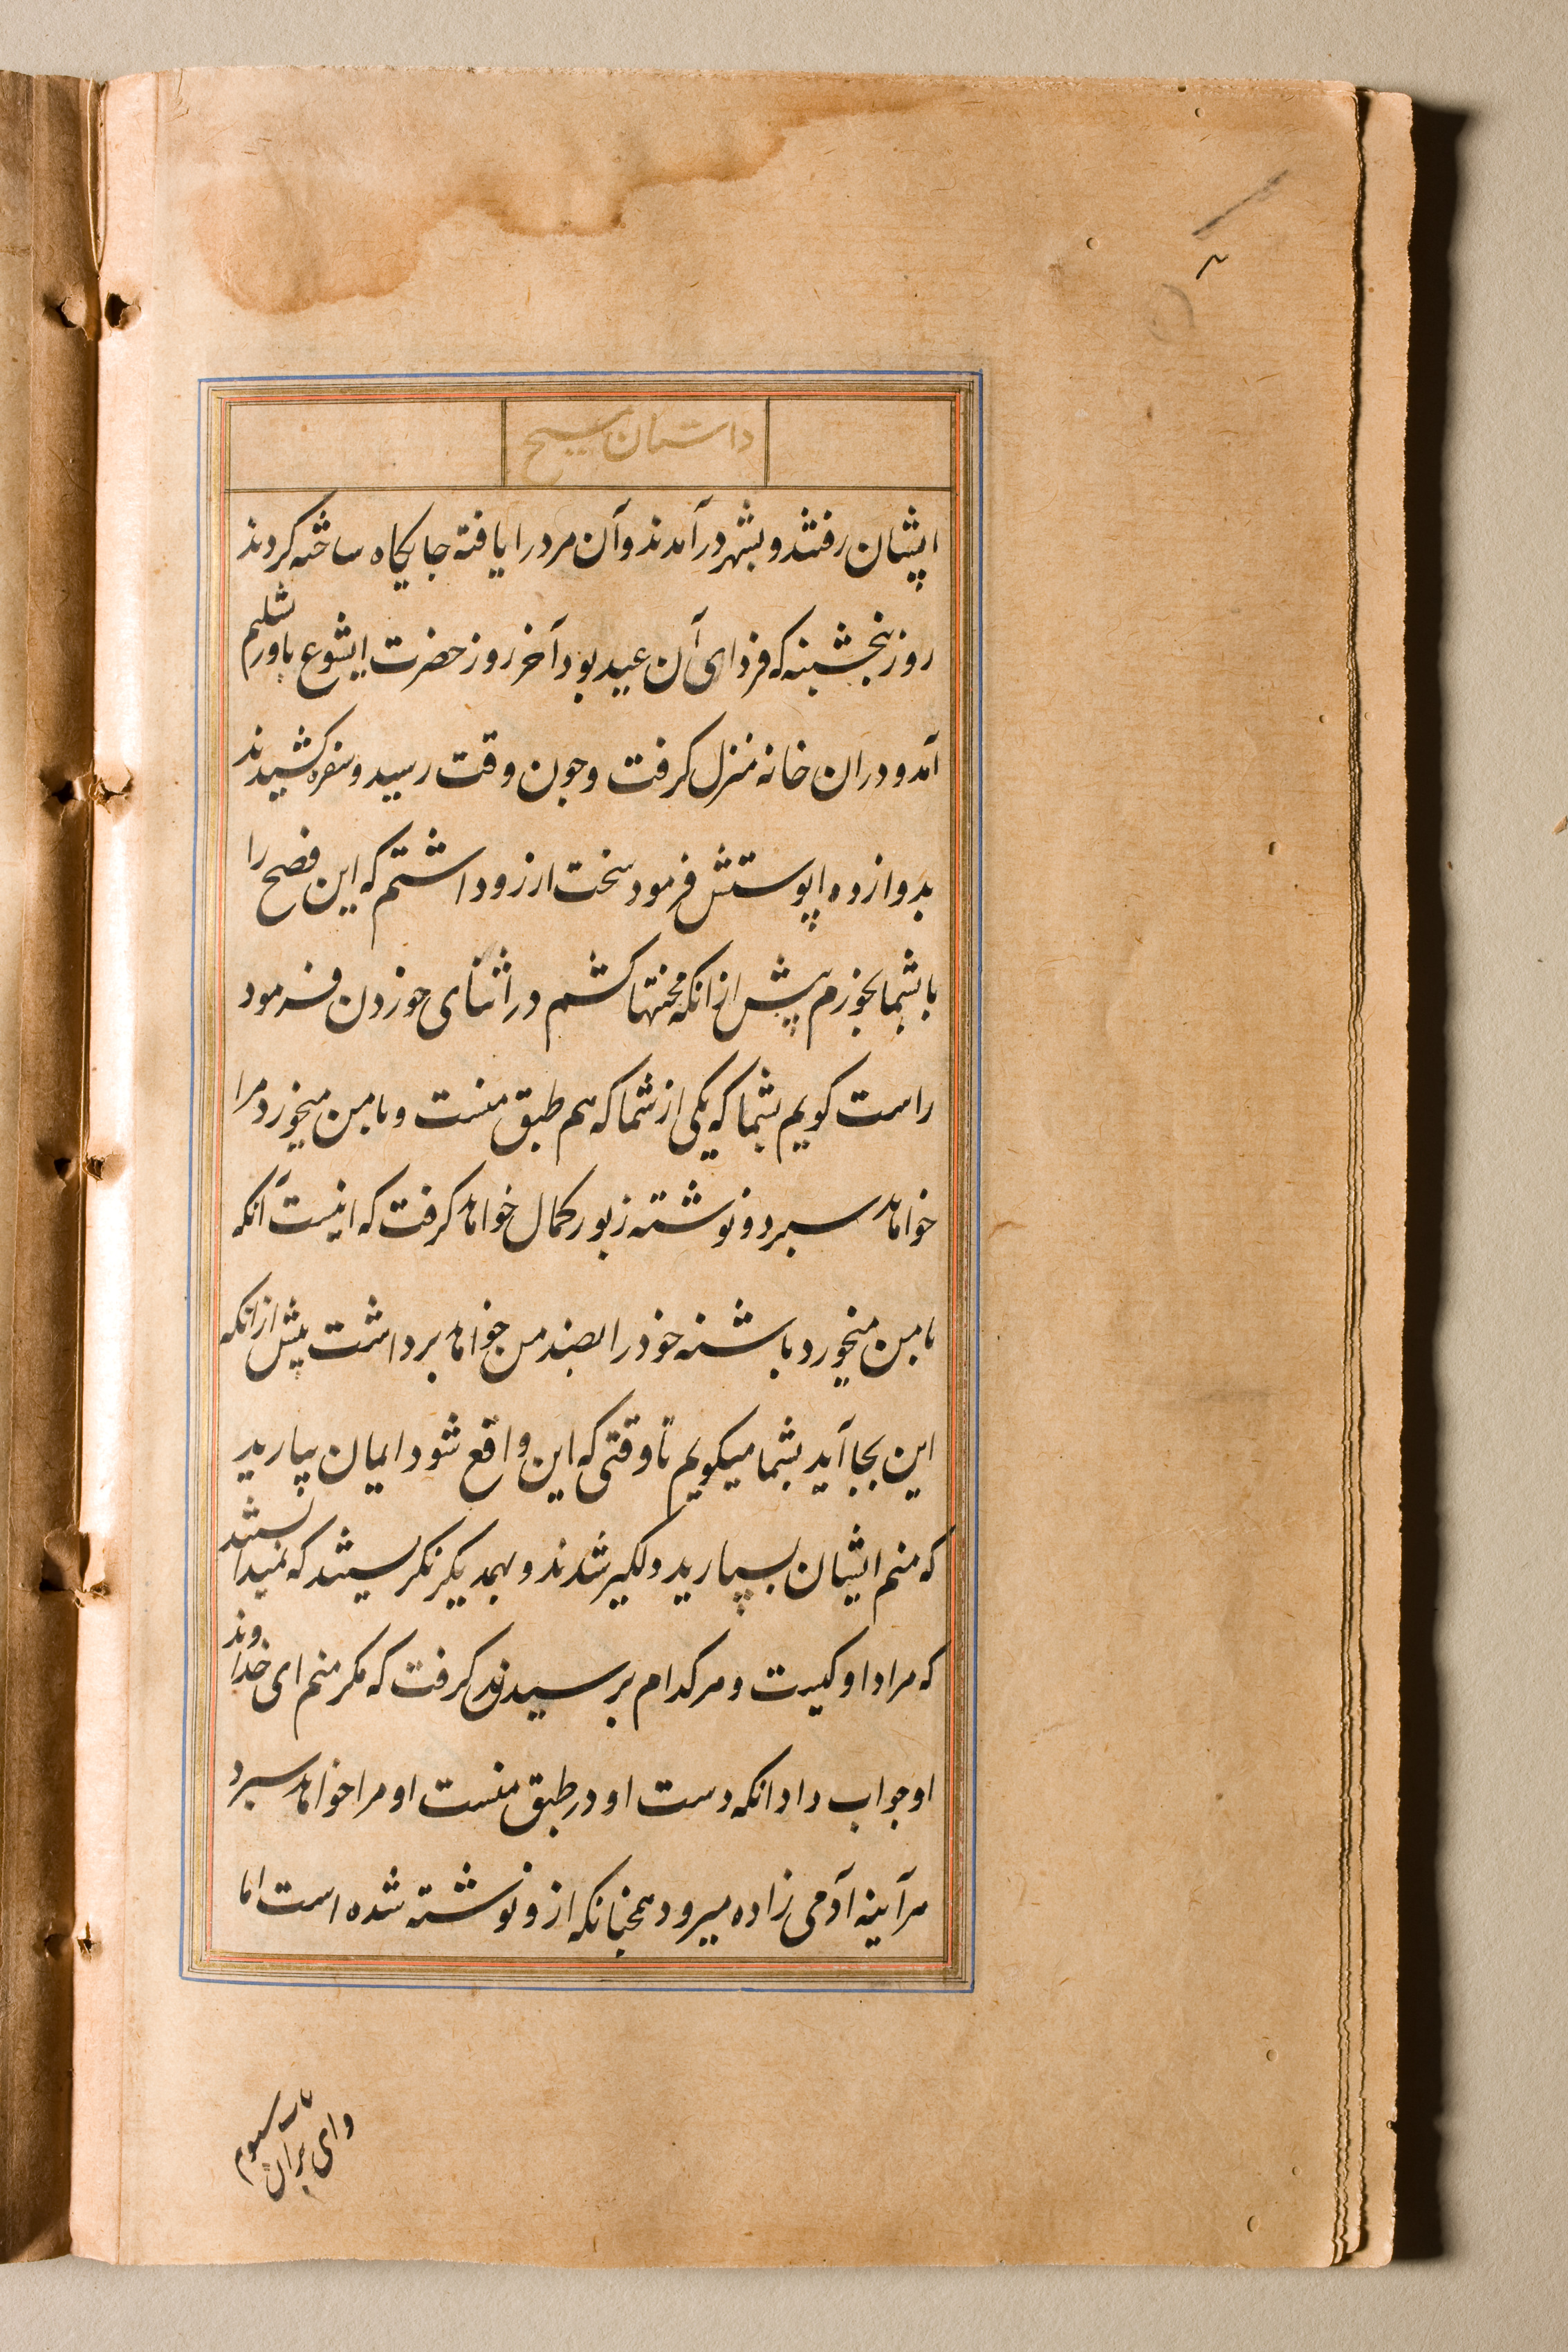 داستان مسیح
ایشان رفتند و بشهر درآمدند و آن مرد را یافته جایکاه ساخته کردند
روز پنجشنبه که فردای آن عید بود آخر روز حضرت ایشوع باورشلیم
آمد و دران خانه منزل کرفت و چون وقت رسید و سفره کشیدند
بدوازده اپوستلش فرمود سخت ارزو داشتم که این فصح را
با شما بخورم پیش ازانکه محنتها کشم در اثنای خوردن فرمود
راست کویم بشما که یکی از شما که هم طبق منست و با من میخورد مرا
خواهد سپرد و نوشته زبور کمال خواهد کرفت که اینست آنکه
با من میخورد پاشنه خود را بضد من خواهد برداشت پیش ازانکه
این بجا آید بشما میکویم تا وقتی که این واقع شود ایمان بیارید
که منم ایشان بسیار دلکیر شدند و بهمدیکر نکریستند که نمیدانستند
که مراد او کیست و هر کدام پرسیدن کرفت که مکر منم ای خداوند
او جواب داد انکه دست او در طبق منست او مرا خواهد سپرد
هر آینه آدمی زاده میرود همچنانکه ازو نوشته شده است اما
وای بران